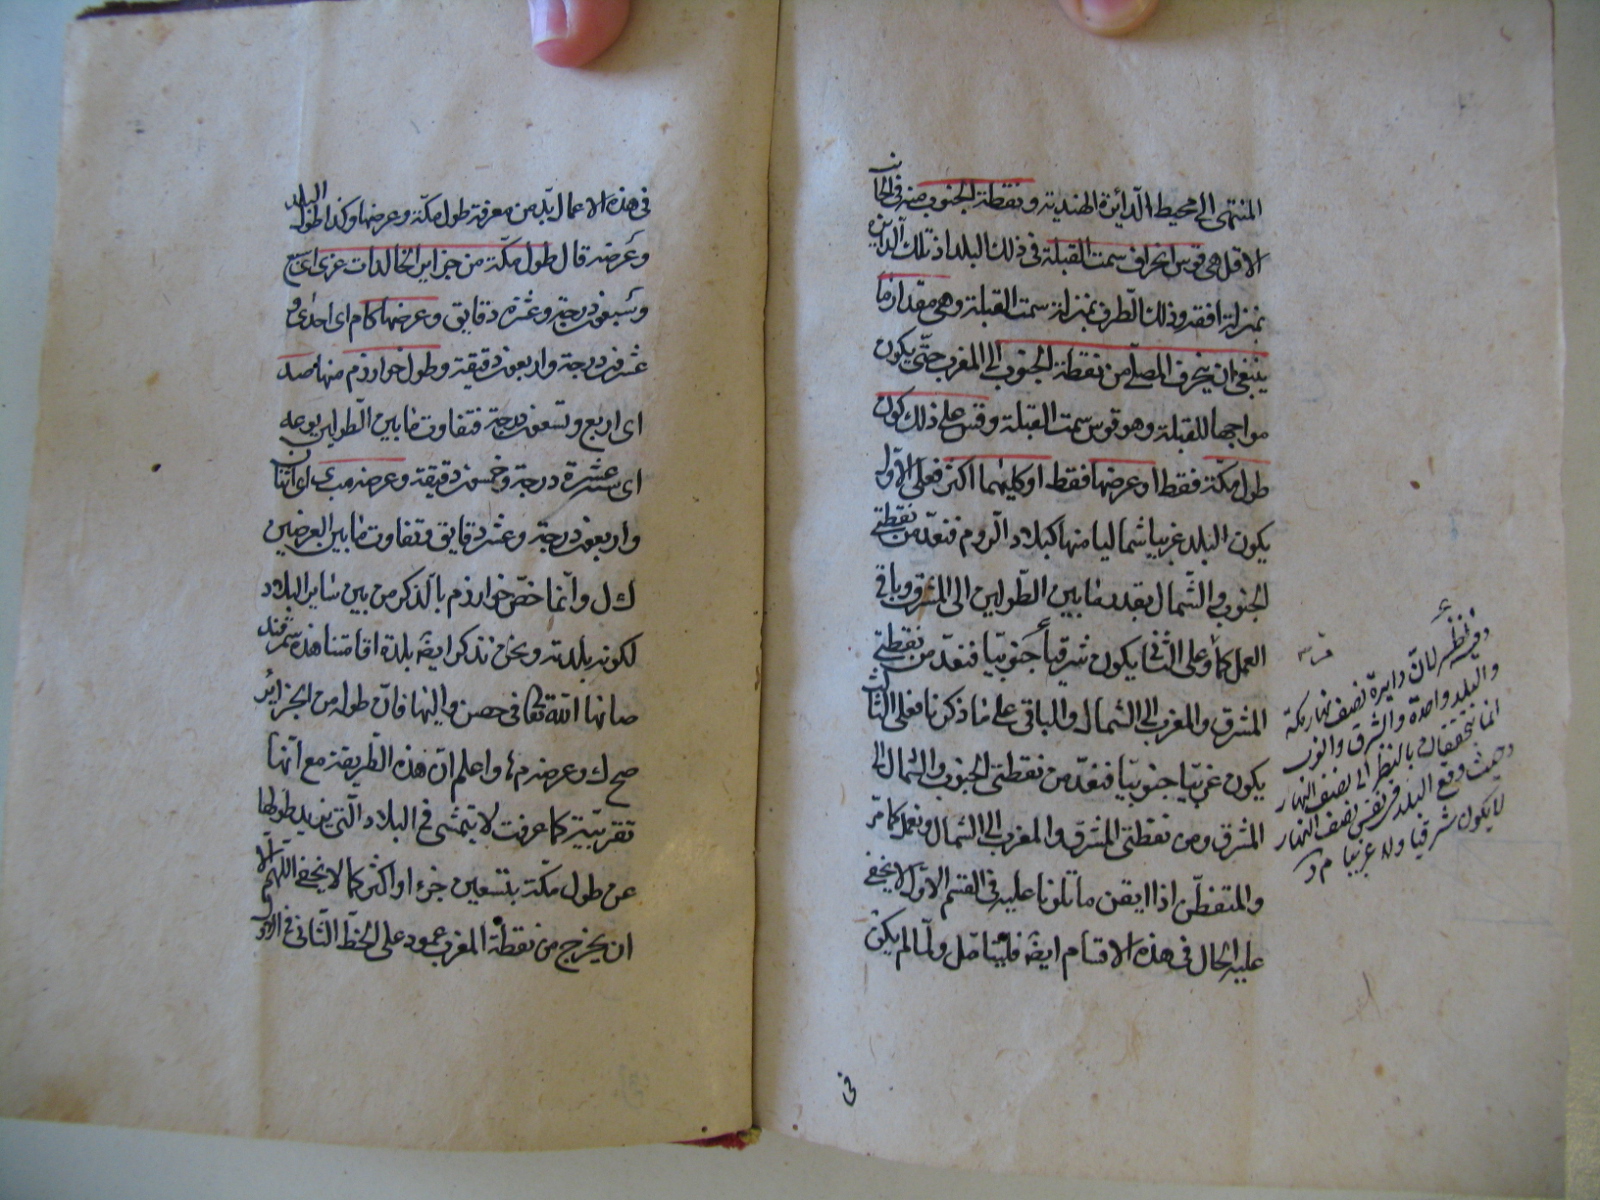 المنتهى الى محيط الدائرة الهندية ونقطة الجنوب منه فى الجانب
الاقل هى قوس انحراف سمت القبلة فى ذلك البلد اذ تلك الدائرة
بمنزلة افقه وذلك الطرف بمنزلة سمت القبلة وهى مقدار ما
ينبغى ان ينحرف المصلى من نقطة الجنوب الى المغرب حتى يكون
مواجها للقبلة وهو قوس سمت القبلة وقس على ذلك كون
طول مكة فقط او عرضها فقط او كليهما اكثر فعلى الاول
يكون البلد غربيا شماليا منها كبلاد الروم فنعد من نقطتى
الجنوب والشمال بقدر ما بين الطولين الى المشرق وباقى
العمل كما مر وعلى الثانى يكون شرقيا جنوبيا فنعد من نقطتى
المشرق والمغرب الى الشمال والباقى على ما ذكرنا فعلى الثالث
يكون غربيا جنوبيا فنعد من نقطتى الجنوب والشمال الى
المشرق ومن نقطتى المشرق والمغرب الى الشمال ونعمل كما مر
والمتفطن اذا ايقن ما تلونا عليه فى القسم الاول لا يخفى
عليه الحال فى هذه الاقسام ايضا فليتامل ولما لم يكن
فى
وفيه نظر لان دايرة نصف نهار مكة
والبلد واحدة والشرق والغرب
انما يتحققان بالنظر الى نصف النهار
وحيث وقع البلد فى نفس نصف النهار
لا يكون شرقيا ولا غربيا م د
فى هذه الاعمال بد من معرفة طول مكة وعرضها وكذا طول البلد
وعرضه قال طول مكة من جزاير الخالدات عزى اى سبع
وسبعون درجة وعشرة دقايق وعرضها كام اى احدى و
عشرون درجة واربعون دقيقة وطول خوارزم منها صد
اى اربع وتسعون درجة فتفاوت ما بين الطولين يو نه
اى ست عشرة درجة وخمسون دقيقة وعرضه مب ى اى اثنان
واربعون درجة وعشر دقايق وتفاوت ما بين العرضين
ك ل وانما خص خوارزم بالذكر من بين ساير البلاد
لكونه بلدته ونحن نذكر ايضا بلدة اقامتنا هذه سمرقند
صانها الله تعالى فى حصن واليها فان طوله من الجزاير
صح ك وعرضه م واعلم ان هذه الطريقة مع انها
تقريبية كما عرفت لا يتمشى فى البلاد التى يزيد طولها
عن طول مكة بتسعين جزء او اكثر كما لا يخفى اللهم الا
ان يخرج من نقطة المغرب عمود على الخط الثانى فى الاول